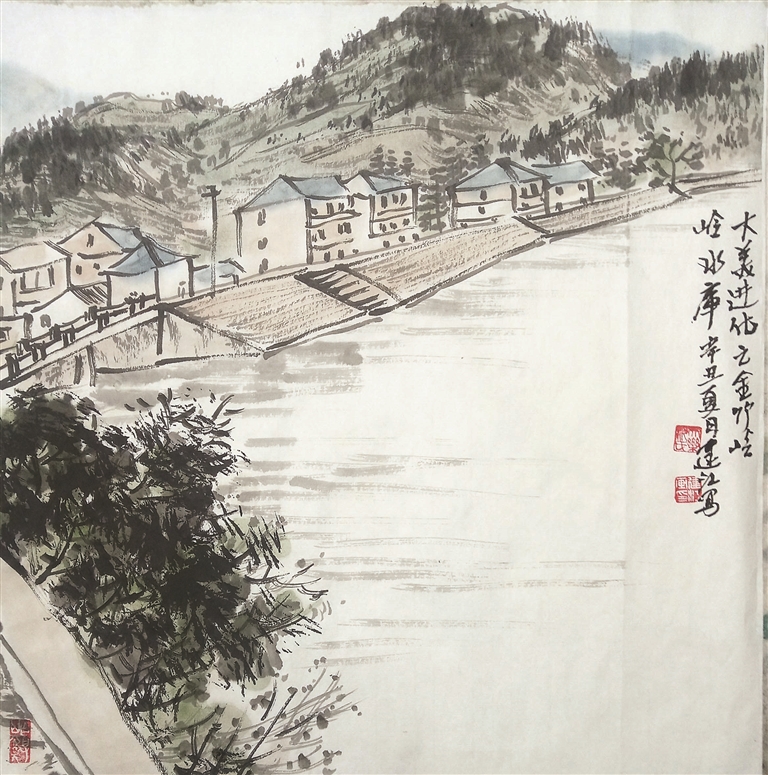 大美进化之金竹岭
岭水库辛丑夏日建江写